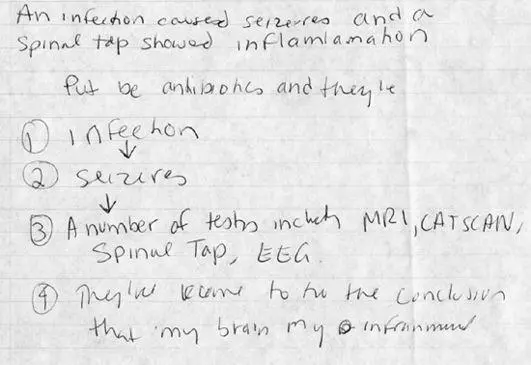 An infection caused seizeres and a
Spinal tap showed inflamlamation
Put be antibiotics and they're
① infection
↓
② seizeres
↓
③ A number of tests includ MRI, CATSCAN,
Spinal Tap, EEG.
④ They've to the conclusion
that my brain my